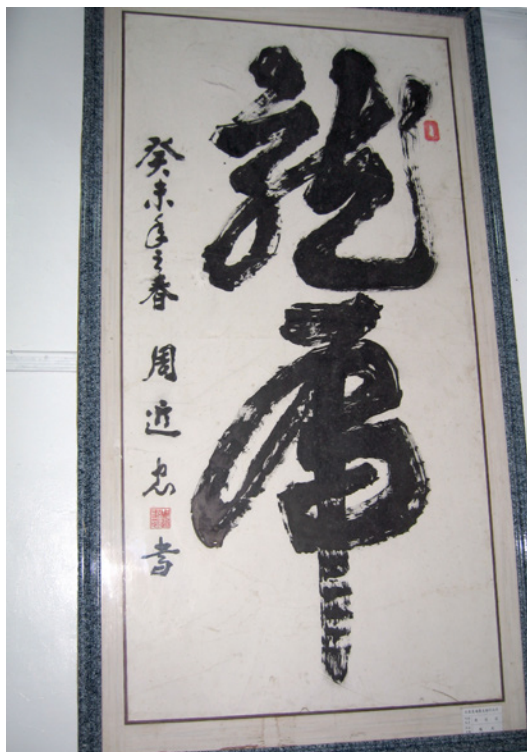 龍虎
癸未年之春 周進忠 書